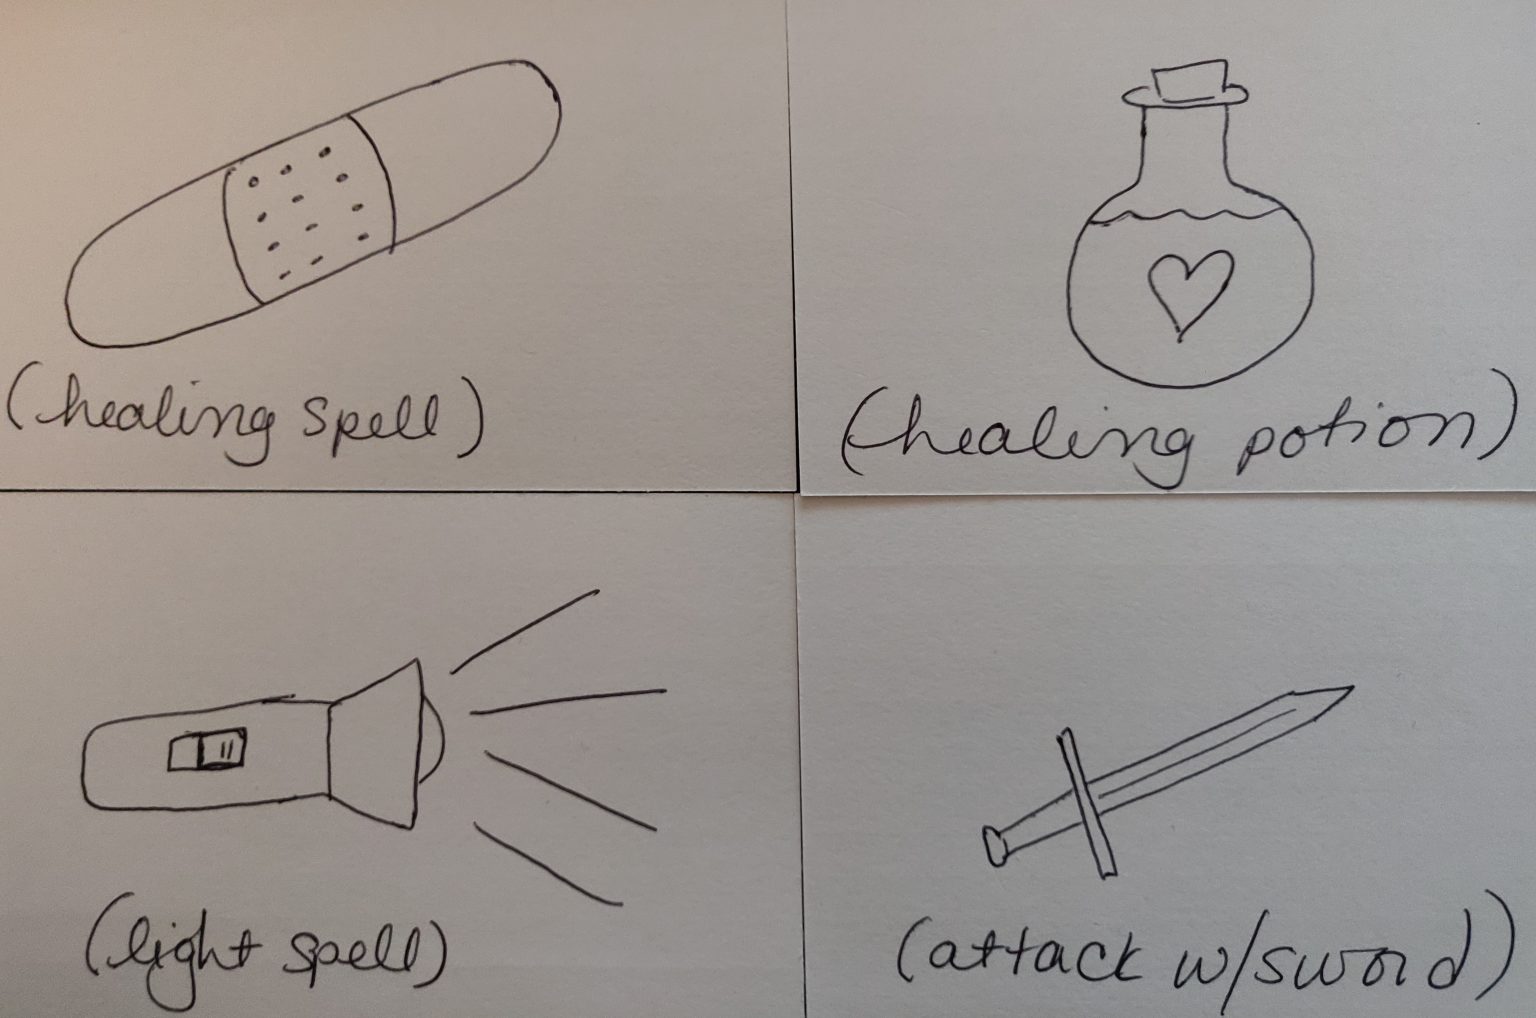 (healing spell)
(healing potion)
(light spell)
(attack w/sword)